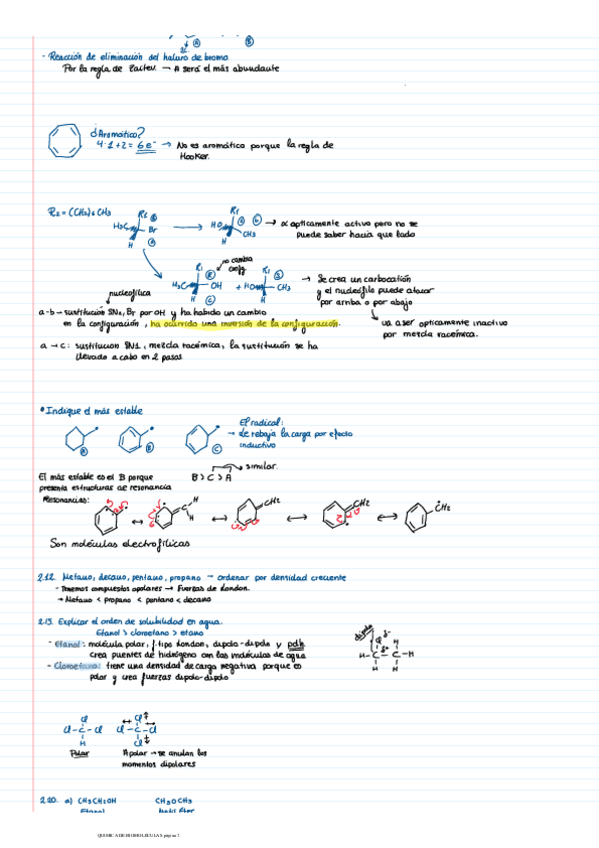 - Reacción de eliminación del haluro de bromo
Por la regla de Zaitev. → A será el más abundante
¿Aromático?
4·1+2 = 6e⁻ → No es aromático porque la regla de
Hooker.
R₂ = (CH₂)₆CH₃
R₂ (S)
H₃C Br
H (A)
R₁ (R) (b)
HO CH₃
H
→ α opticamente activo pero no se
puede saber hacia que lado
no cambia
config.
R₁ (R)
H₃C OH
H (C)
+
R₁ (S)
HO CH₃
H
→ Se crea un carbocatión
y el nucleófilo puede atacar
por arriba o por abajo
va a ser opticamente inactivo
por mezcla racémica.
nucleofílica
a-b → sustitución SN₂, Br por OH y ha habido un cambio
en la configuración, ha ocurrido una inversión de la configuración.
a → c: sustitucion SN1, mezcla racémica, la sustitución se ha
llevado a cabo en 2 pasos
• Indique el más estable
(A) (B) (C)
El radical:
- de rebaja la carga por efecto
inductivo
El más estable es el B porque
presenta estructuras de resonancia
B > C > A
similar.
Resonancias:
C H H
CH₂
CH₂
ĊH₂
Son moléculas electrofílicas
2.12. Metano, decano, pentano, propano → ordenar por densidad creciente
- Tenemos compuestos apolares → Fuerzas de London.
→ Metano < propano < pentano < decano
2.13. Explicar el orden de solubilidad en agua.
Etanol > cloroetano > etano
- Etanol: molécula polar, f. tipo London, dipolo-dipolo y pdh
crea puentes de hidrógeno con las moléculas de agua
- Cloroetano: tiene una densidad de carga negativa porque es
polar y crea fuerzas dipolo-dipolo
dipolo
Cl δ⁻ H
H-C δ⁺-C-H
H H
Cl
Cl-C-Cl
H
Polar
Cl
Cl-C-Cl
Cl
Apolar → se anulan los
momentos dipolares
2.20. a) CH₃CH₂OH CH₃OCH₃
Etanol
QUIMICA DE BIOMOLECULAS página 2